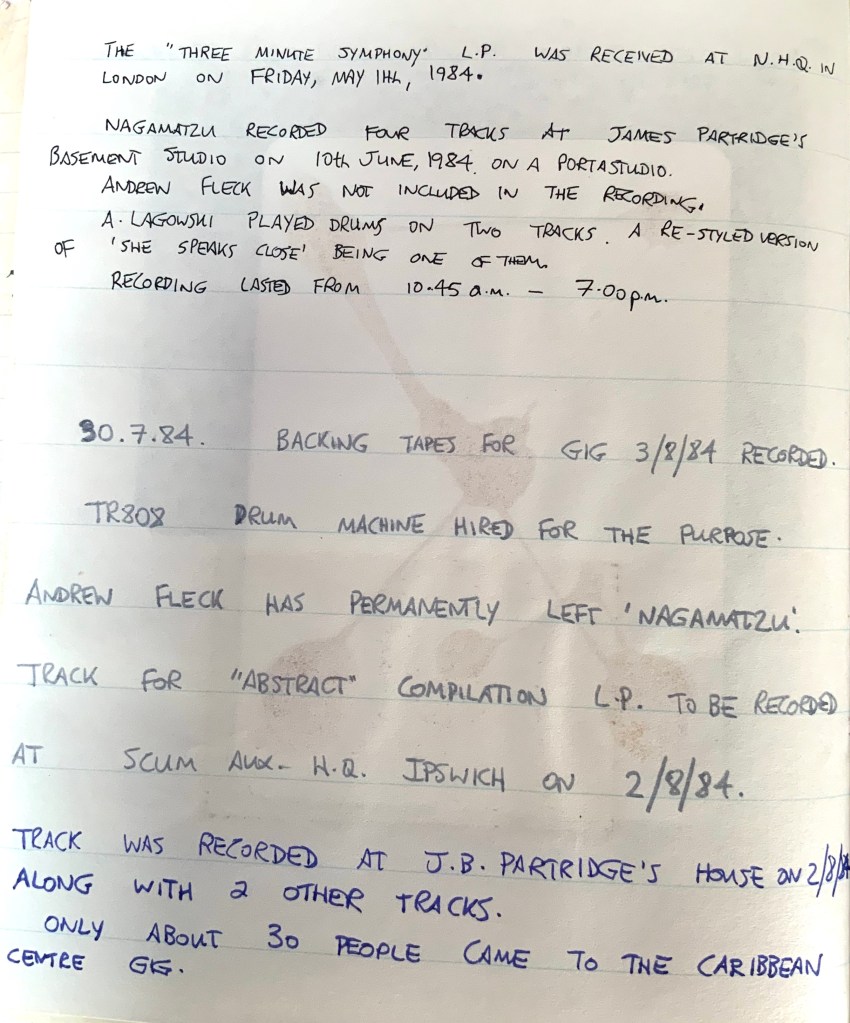 THE "THREE MINUTE SYMPHONY" L.P. WAS RECEIVED AT N.H.Q. IN
LONDON ON FRIDAY, MAY 11th, 1984.
NAGAMATZU RECORDED FOUR TRACKS AT JAMES PARTRIDGE'S
BASEMENT STUDIO ON 10th JUNE, 1984. ON A PORTASTUDIO.
ANDREW FLECK WAS NOT INCLUDED IN THE RECORDING.
A. LAGOWSKI PLAYED DRUMS ON TWO TRACKS. A RE-STYLED VERSION
OF 'SHE SPEAKS CLOSE' BEING ONE OF THEM.
RECORDING LASTED FROM 10.45 a.m. – 7.00 p.m.
30.7.84. BACKING TAPES FOR GIG 3/8/84 RECORDED.
TR808 DRUM MACHINE HIRED FOR THE PURPOSE.
ANDREW FLECK HAS PERMANENTLY LEFT 'NAGAMATZU'.
TRACK FOR "ABSTRACT" COMPILATION L.P. TO BE RECORDED
AT SCUM AUX- H.Q. IPSWICH ON 2/8/84.
TRACK WAS RECORDED AT J.B. PARTRIDGE'S HOUSE ON 2/8/84
ALONG WITH 2 OTHER TRACKS.
ONLY ABOUT 30 PEOPLE CAME TO THE CARIBBEAN
CENTRE GIG.